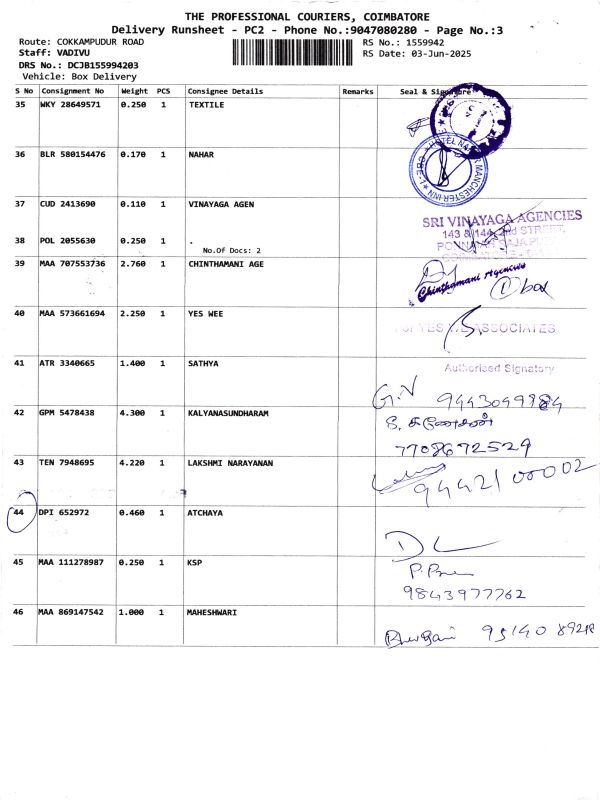 THE PROFESSIONAL COURIERS, COIMBATORE
Delivery Runsheet - PC2 - Phone No.:9047080280 - Page No.:3
Route: COKKAMPUDUR ROAD RS No.: 1559942
Staff: VADIVU RS Date: 03-Jun-2025
DRS No.: DCJB155994203
Vehicle: Box Delivery
S No Consignment No Weight PCS Consignee Details Remarks Seal & Signature
35 WKY 28649571 0.250 1 TEXTILE
36 BLR 580154476 0.170 1 NAHAR
HOTEL MANCHESTER INN CBE-1
37 CUD 2413690 0.110 1 VINAYAGA AGEN
SRI VINAYAGA AGENCIES
143 & 144, 2nd STREET,
38 POL 2055630 0.250 1 .
No.Of Docs: 2
39 MAA 707553736 2.760 1 CHINTHAMANI AGE
Chinthamani Agencies
1 box
40 MAA 573661694 2.250 1 YES WEE
ASSOCIATES
41 ATR 3340665 1.400 1 SATHYA
Authorised Signatory
G.V 9443049984
42 GPM 5478438 4.300 1 KALYANASUNDHARAM
7708672529
43 TEN 7948695 4.220 1 LAKSHMI NARAYANAN
9442100002
44 DPI 652972 0.460 1 ATCHAYA
45 MAA 111278987 0.250 1 KSP
9843977762
46 MAA 869147542 1.000 1 MAHESHWARI